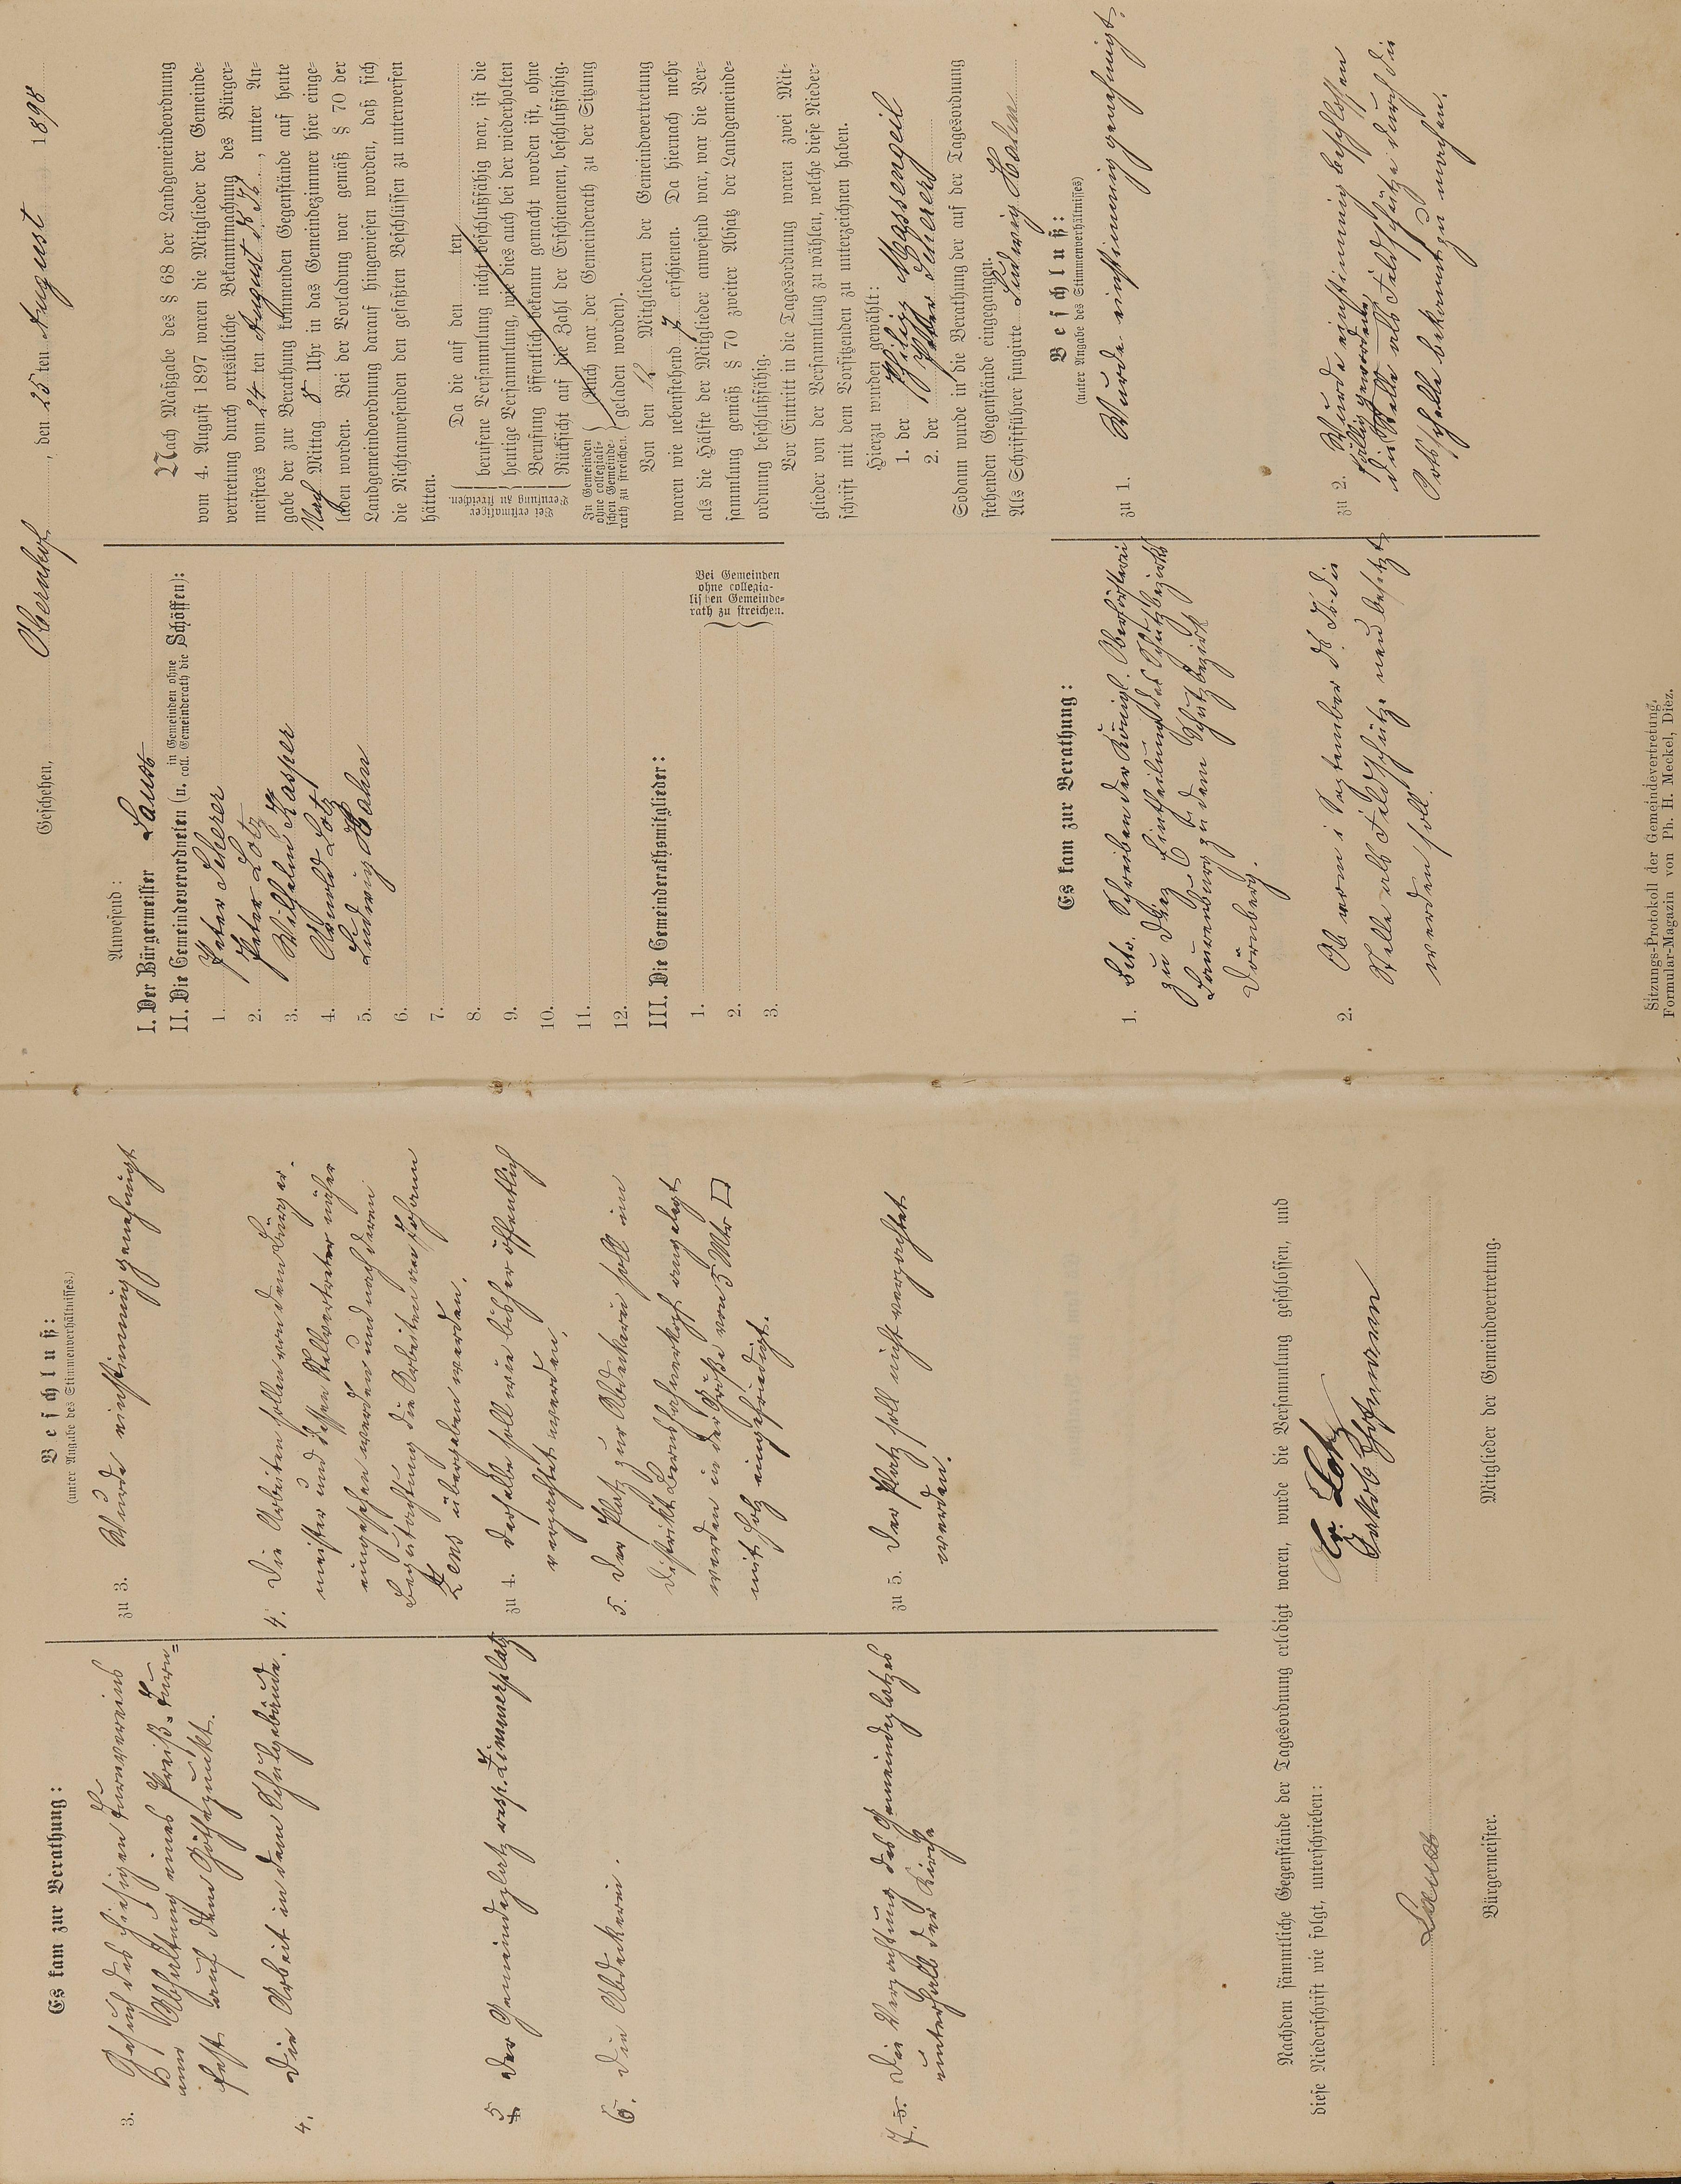 Geschehen, Obernhof, den 25ten August 1898
Anwesend:
I. Der Bürgermeister Lauss
II. Die Gemeindeverordneten (u. in Gemeinden ohne coll. Gemeinderath die Schöffen):
1. Peter Scherer
2. Peter Lotz
3. Wilhelm Kasper
4. Arnold Lotz
5. Ludwig Hahn
6.
7.
8.
9.
10.
11.
12.
III. Die Gemeinderathsmitglieder:
1.
2.
3.
Bei Gemeinden
ohne collegia-
lischen Gemeinde-
rath zu streichen.
Nach Maßgabe des § 68 der Landgemeindeordnung
vom 4. August 1897 waren die Mitglieder der Gemeinde-
vertretung durch ortsübliche Bekanntmachung des Bürger-
meisters vom 24 ten August d. Js., unter An-
gabe der zur Berathung kommenden Gegenstände auf heute
Nach Mittag 8 Uhr in das Gemeindezimmer hier einge-
laden worden. Bei der Vorladung war gemäß § 70 der
Landgemeindeordnung darauf hingewiesen worden, daß sich
die Nichtanwesenden den gefaßten Beschlüssen zu unterwerfen
hätten.
Bei erstmaliger
Berufung zu streichen.
Da die auf den ten
berufene Versammlung nicht beschlußfähig war, ist die
heutige Versammlung, wie dies auch bei der wiederholten
Berufung öffentlich bekannt gemacht worden ist, ohne
Rücksicht auf die Zahl der Erschienenen, beschlußfähig.
In Gemeinden
ohne collegiali-
schen Gemeinde-
rath zu streichen.
(Auch war der Gemeinderath zu der Sitzung
geladen worden).
Von den 12 Mitgliedern der Gemeindevertretung
waren wie nebenstehend 7 erschienen. Da hiernach mehr
als die Hälfte der Mitglieder anwesend war, war die Ver-
sammlung gemäß § 70 zweiter Absatz der Landgemeinde-
ordnung beschlußfähig.
Vor Eintritt in die Tagesordnung waren zwei Mit-
glieder von der Versammlung zu wählen, welche diese Nieder-
schrift mit dem Vorsitzenden zu unterzeichnen haben.
Hierzu wurden gewählt:
1. der Philipp Massengeil
2. der Peter Scherer
Sodann wurde in die Berathung der auf der Tagesordnung
stehenden Gegenstände eingegangen.
Als Schriftführer fungirte Ludwig Hahn
Es kam zur Berathung:
1. Betr. Schreiben der Königl. Oberförsterei
zu Diez Eintheilung des Schutzbezirks
Laurenburg zu dem Schutzbezirk
Dörnberg.
2. Ob vom 1 September d. Js. die
Stelle als Feldschütze neu besetzt
werden soll.
Beschluß:
(unter Angabe des Stimmenverhältnisses)
zu 1. Wurde einstimmig genehmigt.
zu 2. Wurde einstimmig beschlossen
die Stelle als Feldschütze durch die
Ortsschelle bekannt zu machen.
Sitzungs-Protokoll der Gemeindevertretung.
Formular-Magazin von Ph. H. Meckel, Diez.
Es kam zur Berathung:
3. Gesuch des hiesigen Turnvereins
um Abhaltung eines Preis-Turn-
fest auf dem Göthepunkt.
4. Die Arbeit in dem Schulgebäude.
5 Der Gemeindeplatz resp. Zimmerplatz
6. Die Abdeckerei.
7. 5. Die Verpachtung des Gemeindeplatzes
unterhalb der Kirche
Beschluß:
(unter Angabe des Stimmenverhältnisses.)
zu 3. Wurde einstimmig genehmigt
4. Die Arbeiten sollen von dem Bürger-
meister und dessen Stellvertreter näher
eingesehen werden und nach deren
Begutachtung die Arbeiten an Johann
Zens übergeben werden.
zu 4. Derselbe soll wie bisher öffentlich
verpachtet werden.
5. Der Platz zur Abdeckerei soll im
Distrikt angelegt
werden in der Größe von 5 Mtr □
mit Holz eingefriedigt.
zu 5. Der Platz soll nicht verpachtet
werden.
Nachdem sämmtliche Gegenstände der Tagesordnung erledigt waren, wurde die Versammlung geschlossen, und
diese Niederschrift wie folgt, unterschrieben:
Lauss
Bürgermeister.
Ar. Lotz
Jakob Hofmann
Mitglieder der Gemeindevertretung.